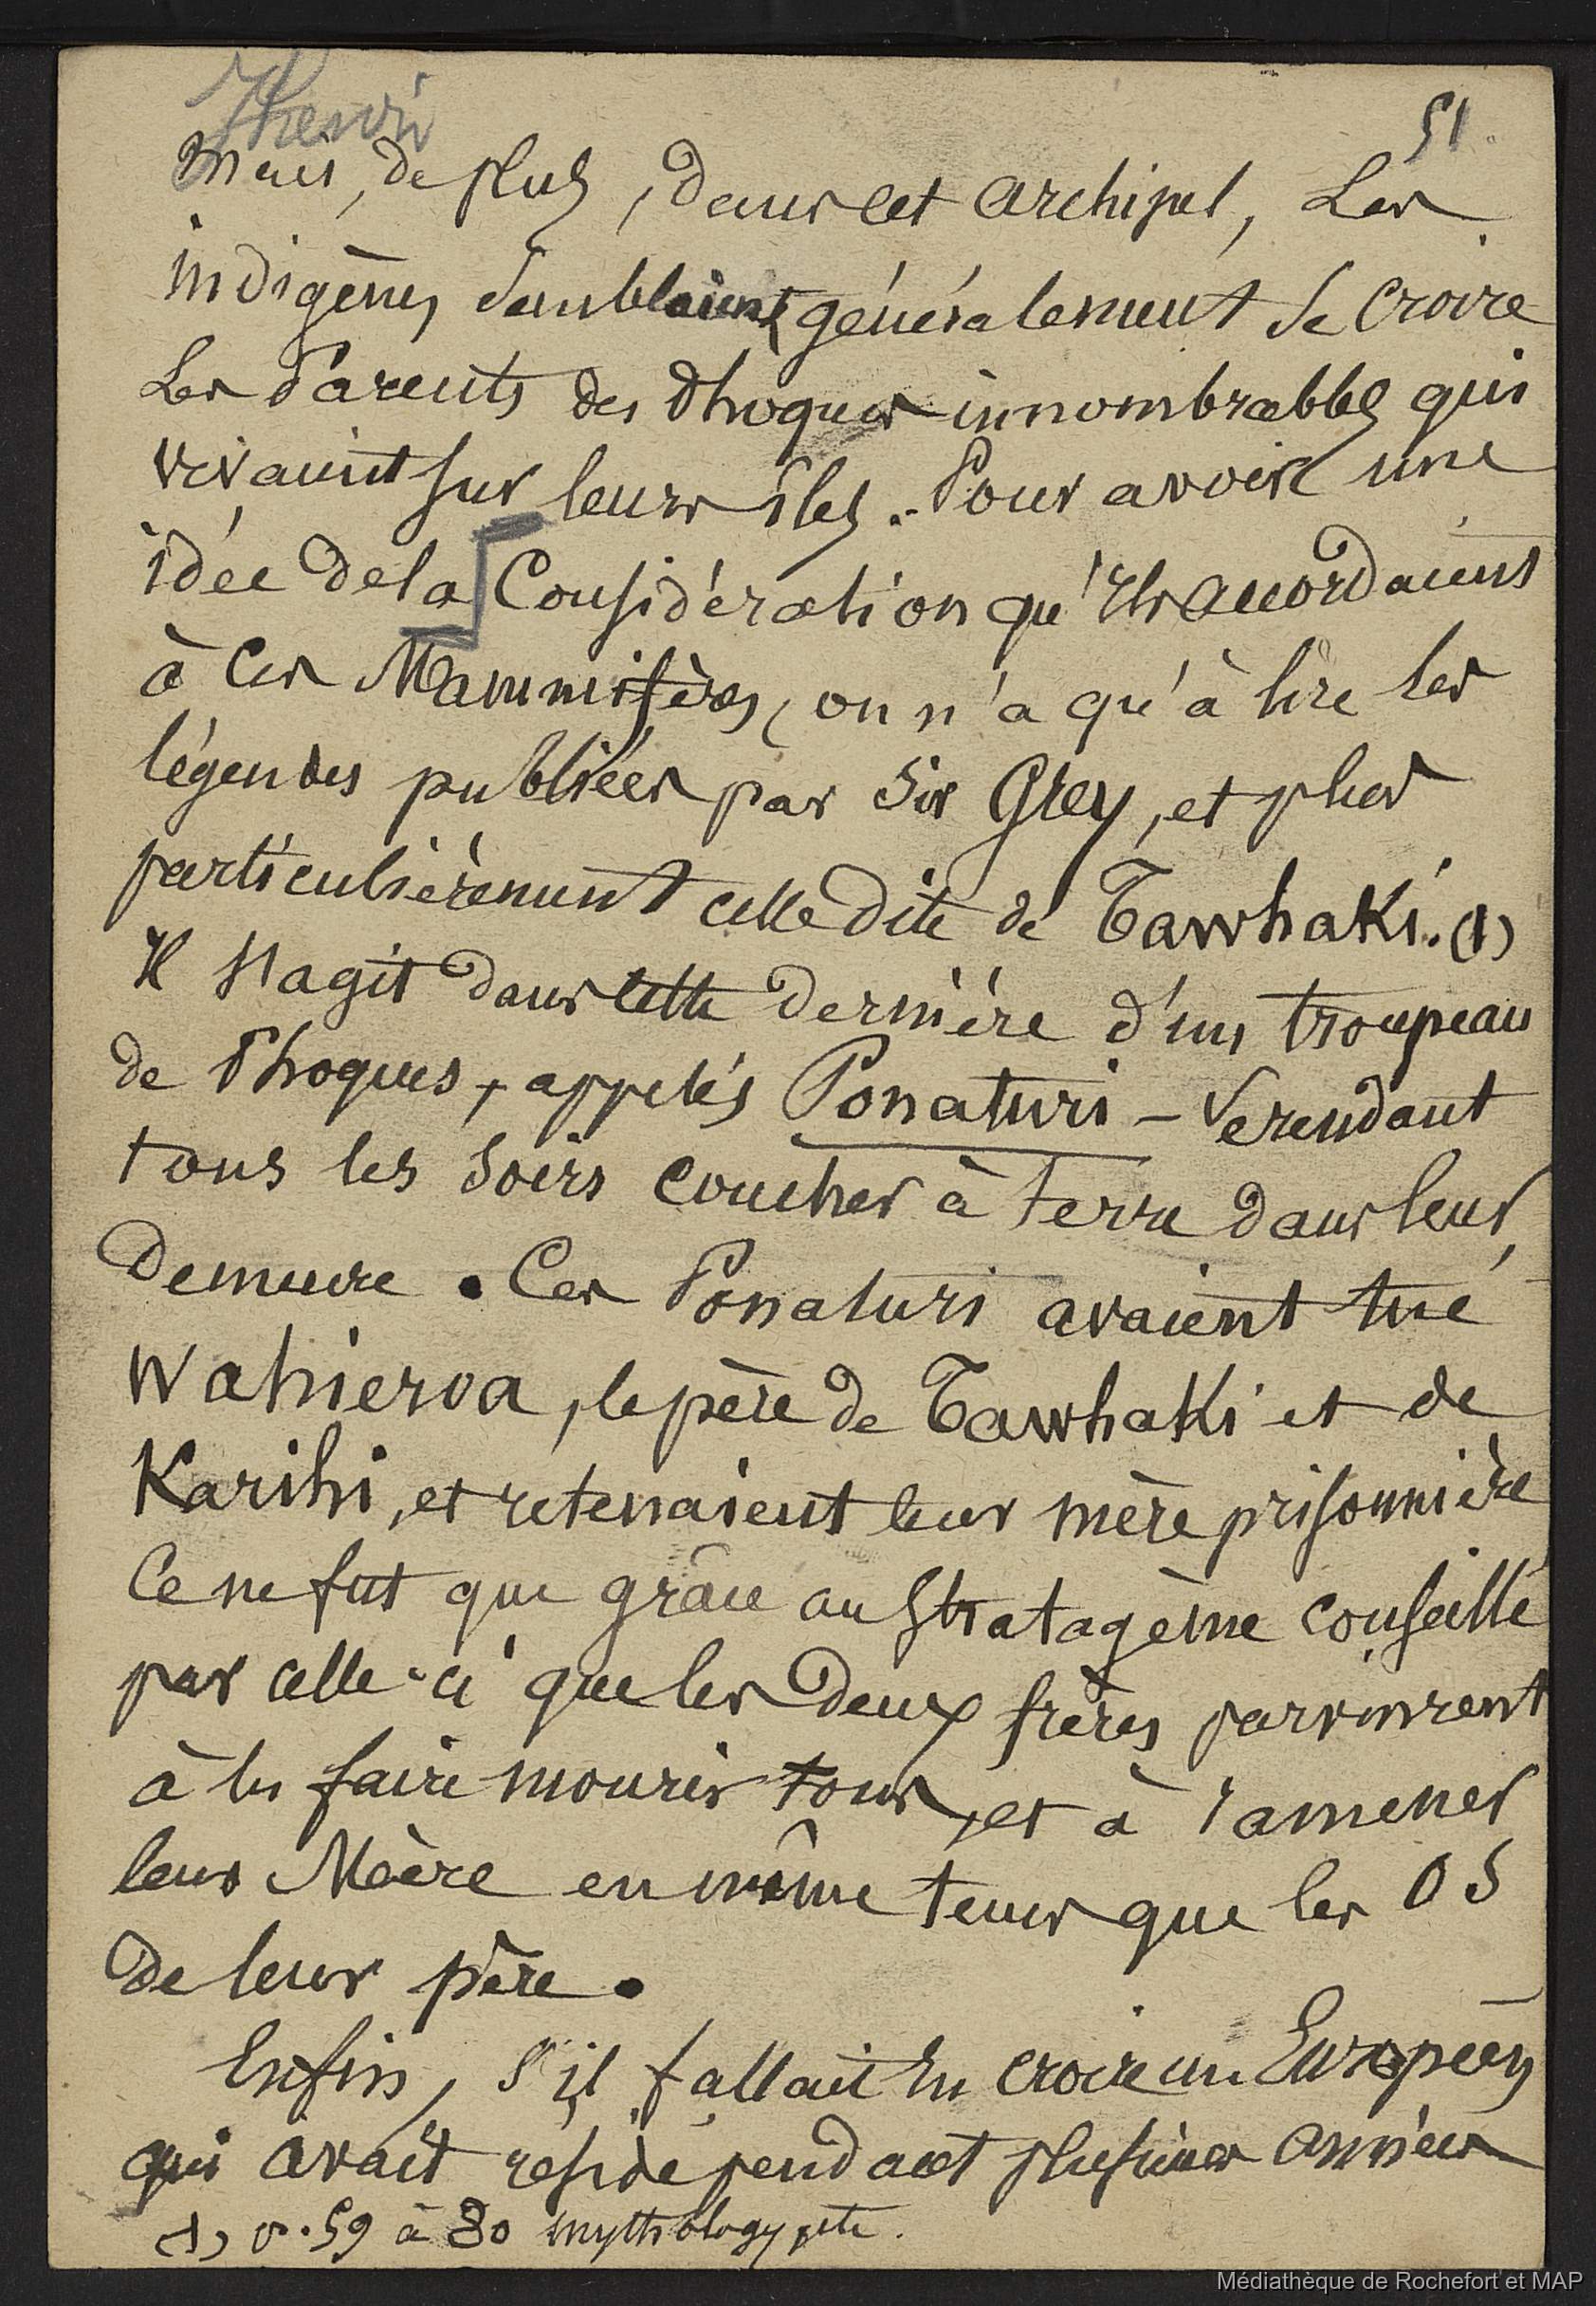 Henri
51.
Mais, de plus, dans cet archipel, Les
indigènes semblaient généralement se croire
Les Parents des Phoques innombrables qui
vivaient sur leurs îles. Pour avoir une
idée de la Considération qu'ils accordaient
à Ces Mammifères, on n'a qu'à lire les
légendes publiées par Sir Grey, et plus
particulièrement celle dite de Tawhaki. (1)
Il s'agit dans cette dernière d'un troupeau
de Phoques, appelés Ponaturi - se rendant
tous les soirs coucher à terre dans leur
Demeure. Ces Ponaturi avaient tué
Wahieroa, le père de Tawhaki et de
Karihi, et retenaient leur mère prisonnière
Ce ne fut que grâce au Stratagème conseillé
par celle-ci que les deux frères parvinrent
à les faire mourir tous, et à ramener
leur Mère en même tems que les OS
de leur père.
Enfin, s'il fallait en croire un Européen
qui avait résidé pendant plusieurs années
(1) v. 59 à 80 mythology, etc.
Médiathèque de Rochefort et MAP